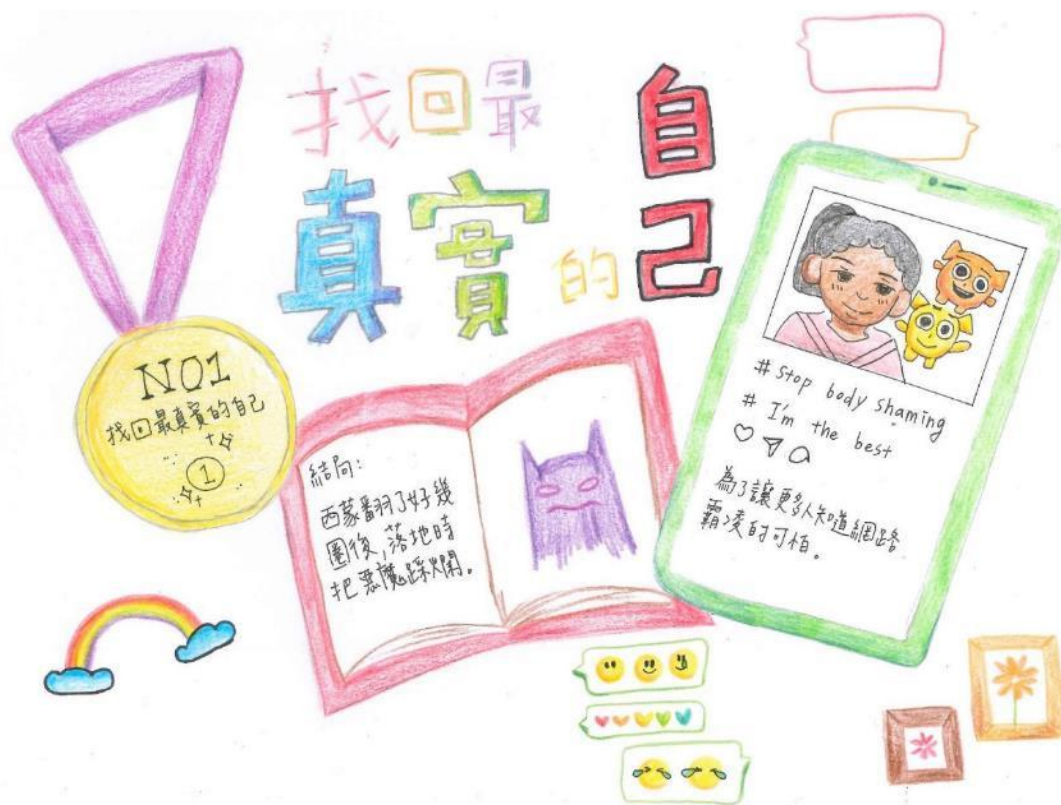 找回最
真實的
自己
NO1
找回最真實的自己
1
結局:
西蒙翻了好幾
圈後,落地時
把惡魔踩爛。
# Stop body shaming
# I'm the best
為了讓更多人知道網路
霸凌的可怕。